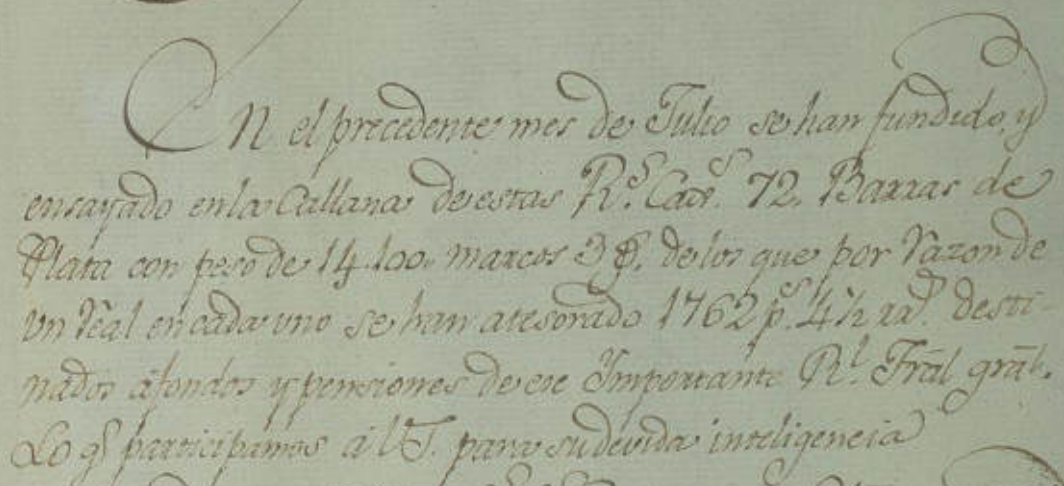 EN el precedente mes de Julio se han fundido, y
ensayado en la Callana de estas R.s Cax.s 72. Barras de
Plata con peso de 14.100. marcos 3 de los que por razon de
Un Real en cada uno se han atesorado 1762 p.s 4½ rr.s desti-
nados á fondos y pensiones de ese Importante R.l Trâl grâl.
Lo q.e participamos á U.S. para su devida inteligencia